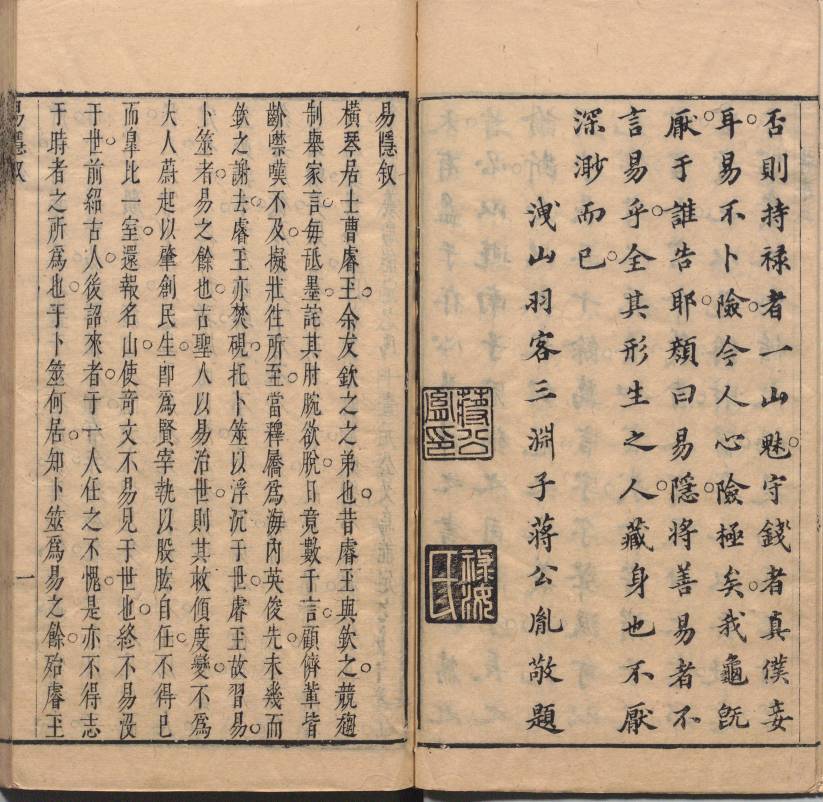 否則持祿者一山魅守錢者真僕妾
耳易不卜險今人心險極矣我龜旣
厭于誰告耶頖曰易隱將善易者不
言易乎全其形生之人藏身也不厭
深渺而已
洩山羽客三淵子蔣公胤敬題
蔣公胤印
氏
易隱叙
橫琴居士曹睿玉余友欽之之弟也昔睿玉與欽之競趨
制舉家言每舐墨詫其肘腕欲脫日竟數千言顧儕輩皆
齡噤嘆不及擬壯徃所至當釋屩為海內英俊先未幾而
欽之謝去睿玉亦焚硯托卜筮以浮沉于世睿玉故習易
卜筮者易之餘也古聖人以易治世則其敉傾度變不為
大人蔚起以肇創民生卽為賢宰執以股肱自任不得已
而皐比一室還報名山使竒文不易見于世也終不易沒
于世前紹古人後詔來者于一人任之不愧是亦不得志
于時者之所為也于卜筮何居知卜筮為易之餘殆睿玉
易隱叙
一